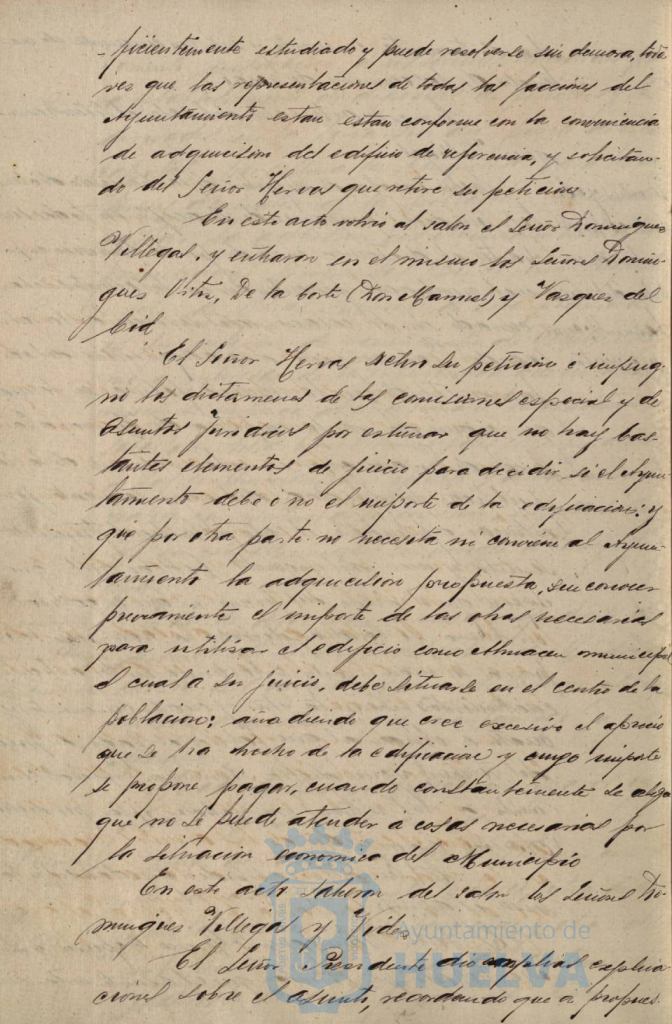 ficientemente estudiado y puede resolverse sin demora, toda
vez que las representaciones de todas las facciones del
Ayuntamiento estan estan conforme con la conveniencia
de adquicision del edificio de referencia, y solicitan-
do del Señor Hervas que retire su peticion
En este acto volvio al salon el Señor Dominguez
Villegas, y entraron en el mismo los Señores Domin-
gues De la Corte (Don Manuel) y Vazquez del
Cid.
El Señor Hervas retiro su peticion e impug
no los dictamenes de las comisiones especial y de
Asuntos juridicos por estimar que no hay bas-
tantes elementos de juicio para decidir si el Ayun-
tamiento debe o no el importe de la edificacion; y
que por otra parte no necesita ni conviene al Ayun-
tamiento la adquicision propuesta, sin conocer
previamente el importe de las obras necesarias
para utilizar el edificio como Almacen municipal
el cual a su juicio, debe situarse en el centro de la
poblacion; añadiendo que cree excesivo el aprecio
que se ha hecho de la edificacion y cuyo importe
se propone pagar, cuando constantemente se alega
que no se puede atender a cosas necesarias por
la situacion economica del Municipio
En este acto salieron del salon los Señores Do-
mingues Villegas y
El Señor Presidente dio amplias explica
ciones sobre el asunto, recordando que a propues
Ayuntamiento de
HUELVA